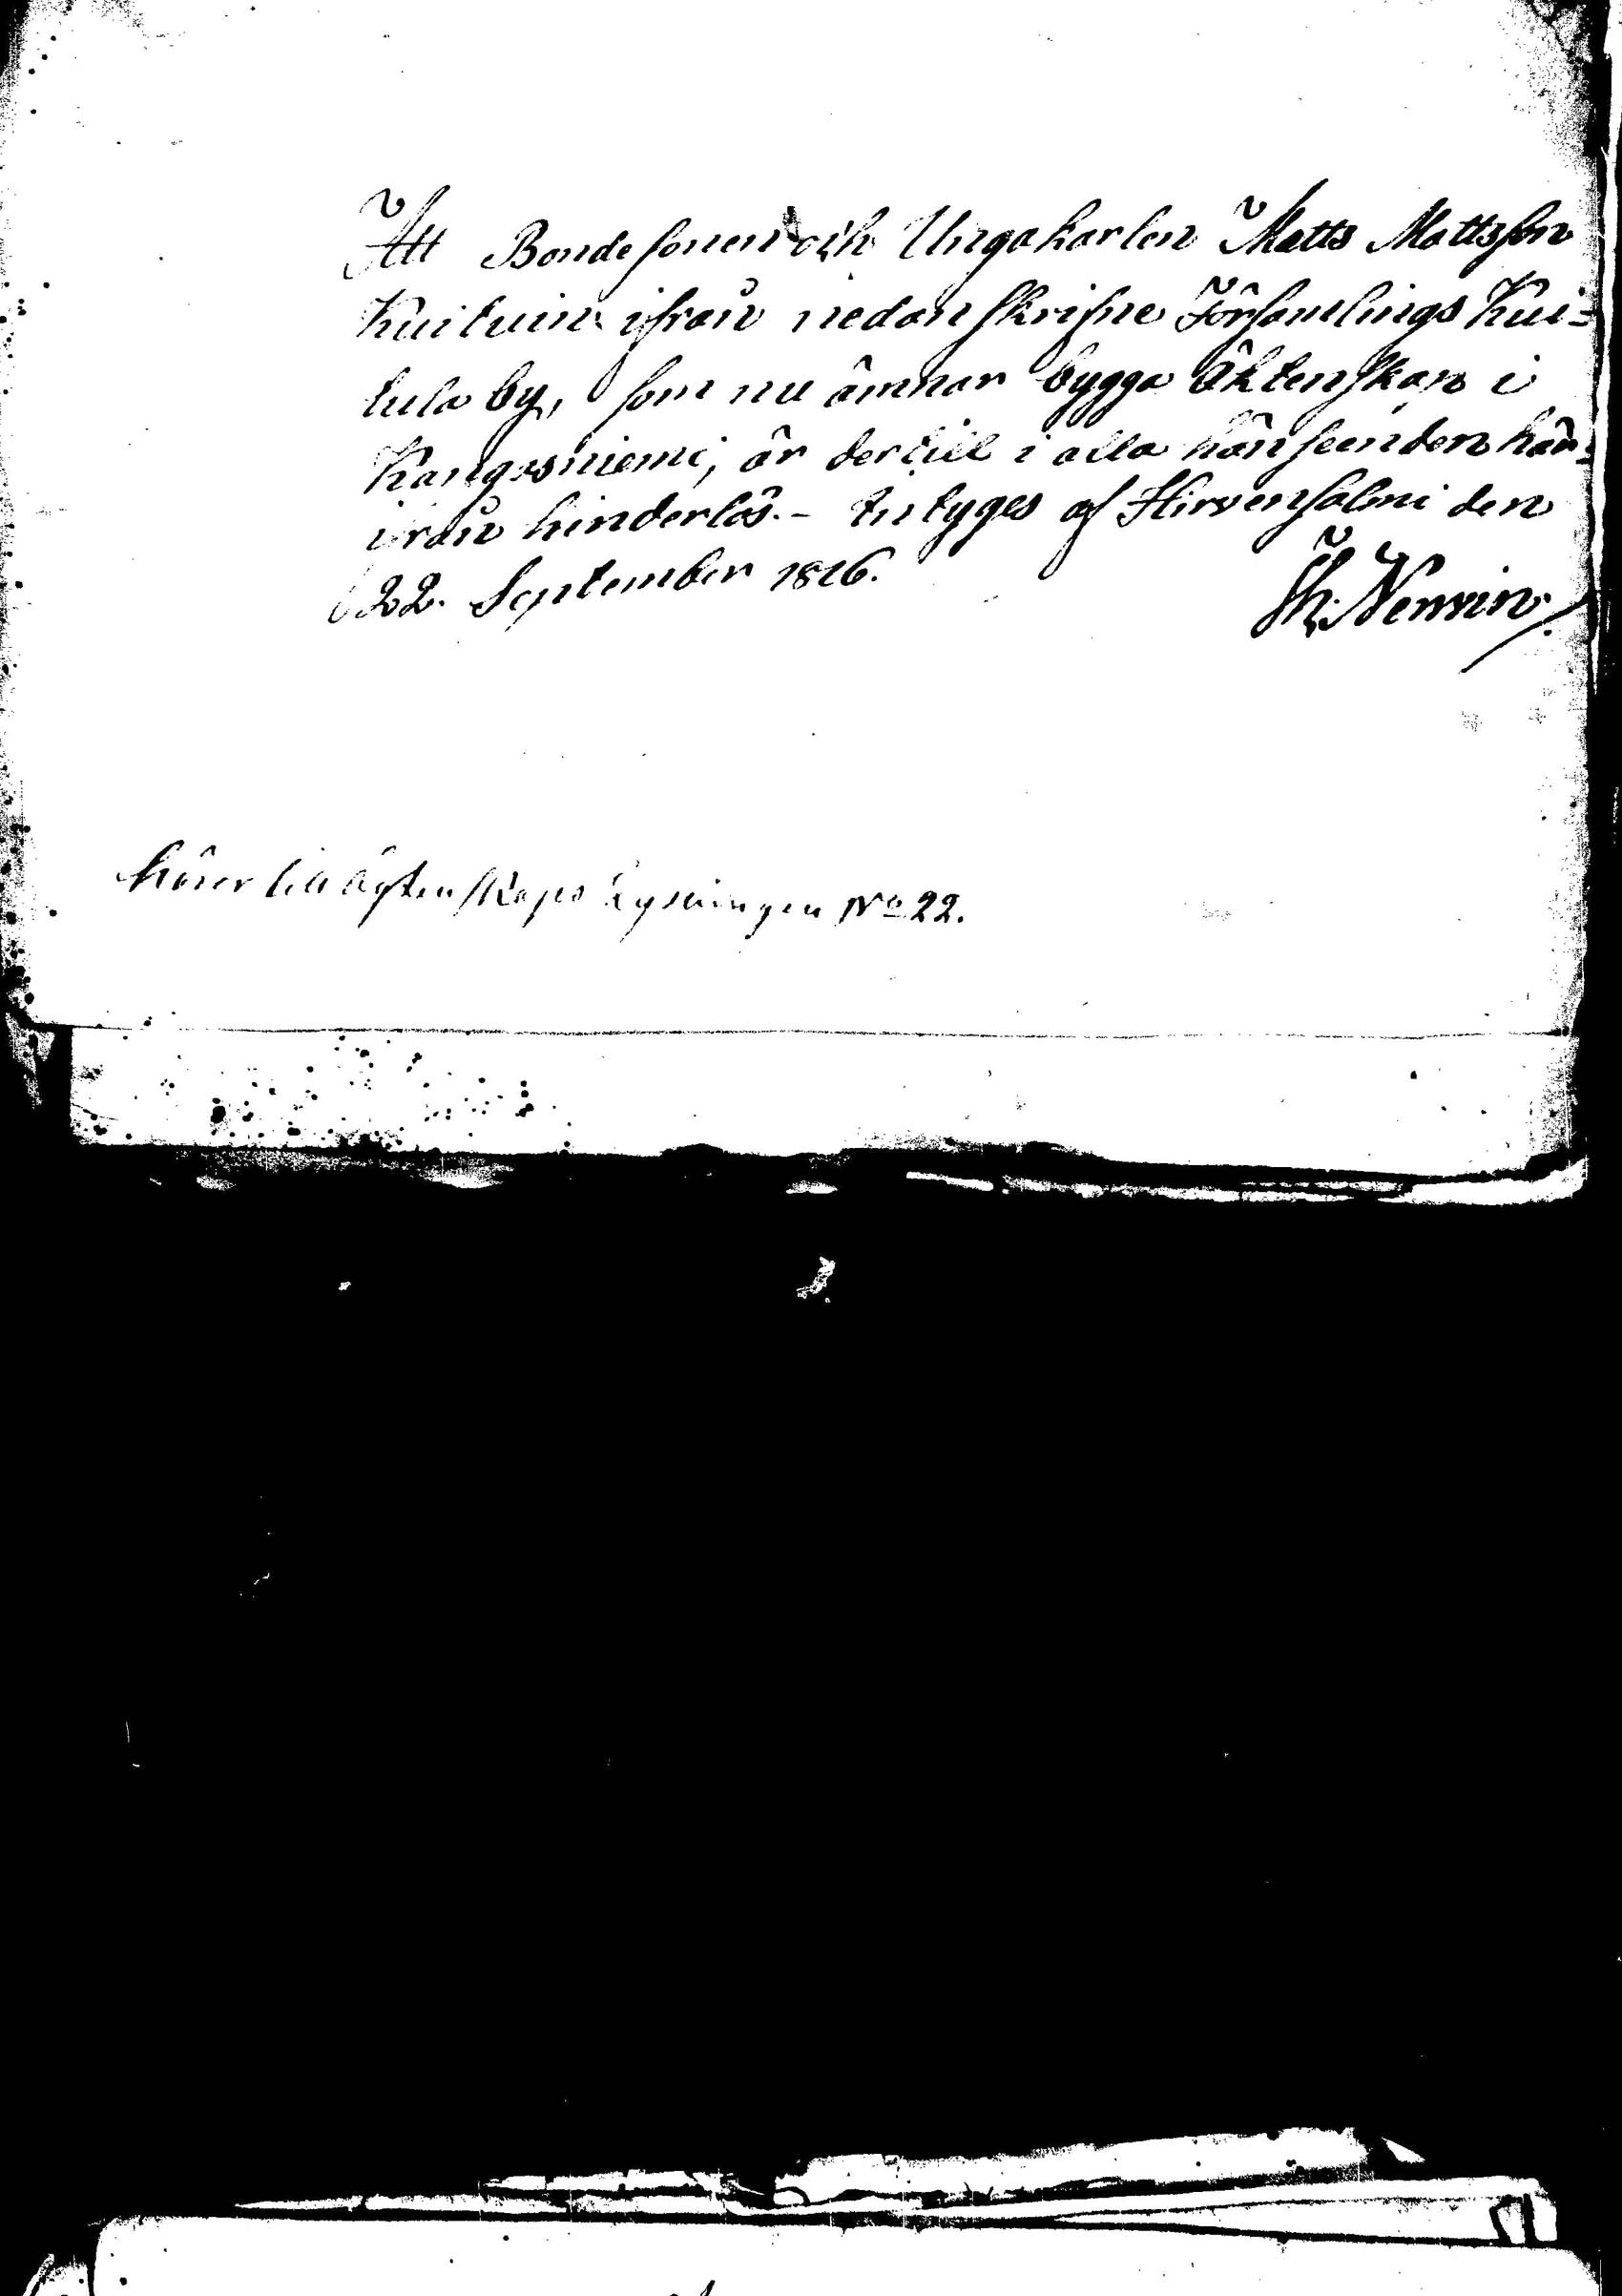 Att Bondesonen och Ungakarlen Matts Mattsson
Kuituin ifrån nedanskrifne Församlings Kui=
tula by, som nu ämnar bygga äktenskap i
Kangasniemi, är dertill i alla hänseenden här=
ifrån hinderlös. – Intyges af Hirvensalmi den
22. September 1826.
Th. Nervin
hörer till ägtenskaps Lysningen No 22.